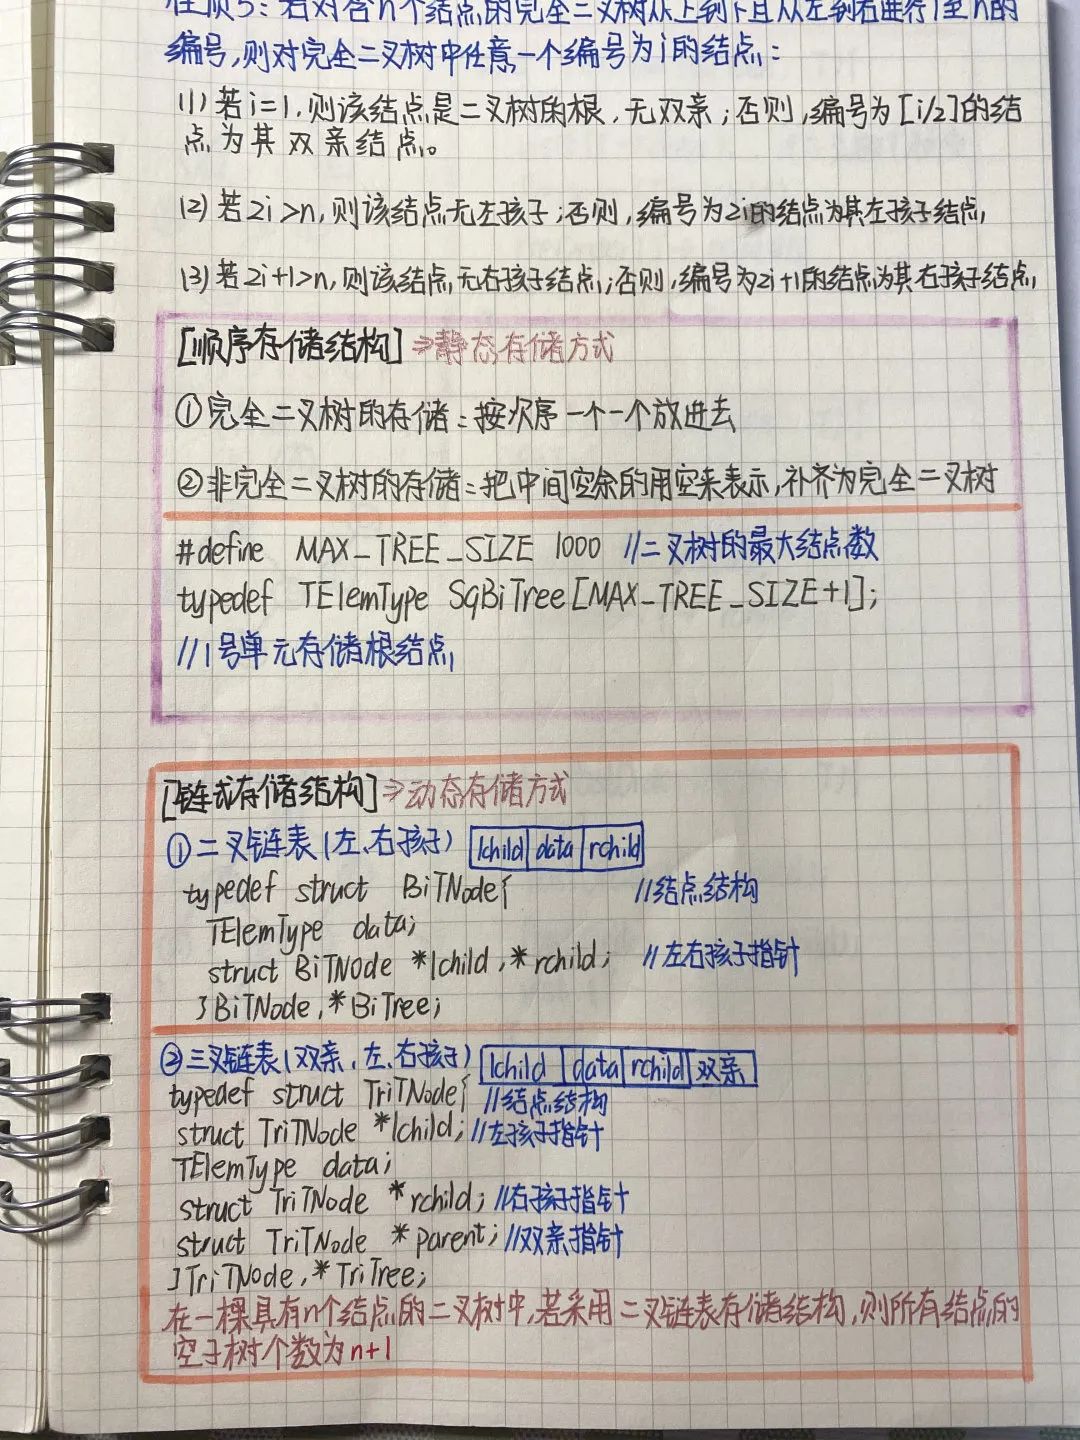 性质5：若对含n个结点的完全二叉树从上到下且从左到右进行1至n的
编号,则对完全二叉树中任意一个编号为i的结点：
(1)若i=1,则该结点是二叉树的根,无双亲;否则,编号为[i/2]的结
点为其双亲结点。
(2)若2i>n,则该结点无左孩子;否则,编号为2i的结点为其左孩子结点,
(3)若2i+1>n,则该结点无右孩子结点;否则,编号为2i+1的结点为其右孩子结点,
[顺序存储结构]⇒静态存储方式
①完全二叉树的存储：按次序一个一个放进去
②非完全二叉树的存储：把中间空余的用空来表示,补齐为完全二叉树
#define MAX_TREE_SIZE 1000 //二叉树的最大结点数
typedef TElemType SqBiTree[MAX_TREE_SIZE+1];
//1号单元存储根结点
[链式存储结构]⇒动态存储方式
①二叉链表(左、右孩子) lchild data rchild
typedef struct BiTNode{ //结点结构
TElemType data;
struct BiTNode *lchild,*rchild; //左右孩子指针
}BiTNode,*BiTree;
②三叉链表(双亲、左、右孩子) lchild data rchild 双亲
typedef struct TriTNode{ //结点结构
struct TriTNode *lchild; //左孩子指针
TElemType data;
struct TriTNode *rchild; //右孩子指针
struct TriTNode *parent; //双亲指针
}TriTNode,*TriTree;
在一棵具有n个结点的二叉树中,若采用二叉链表存储结构,则所有结点的
空子树个数为n+1